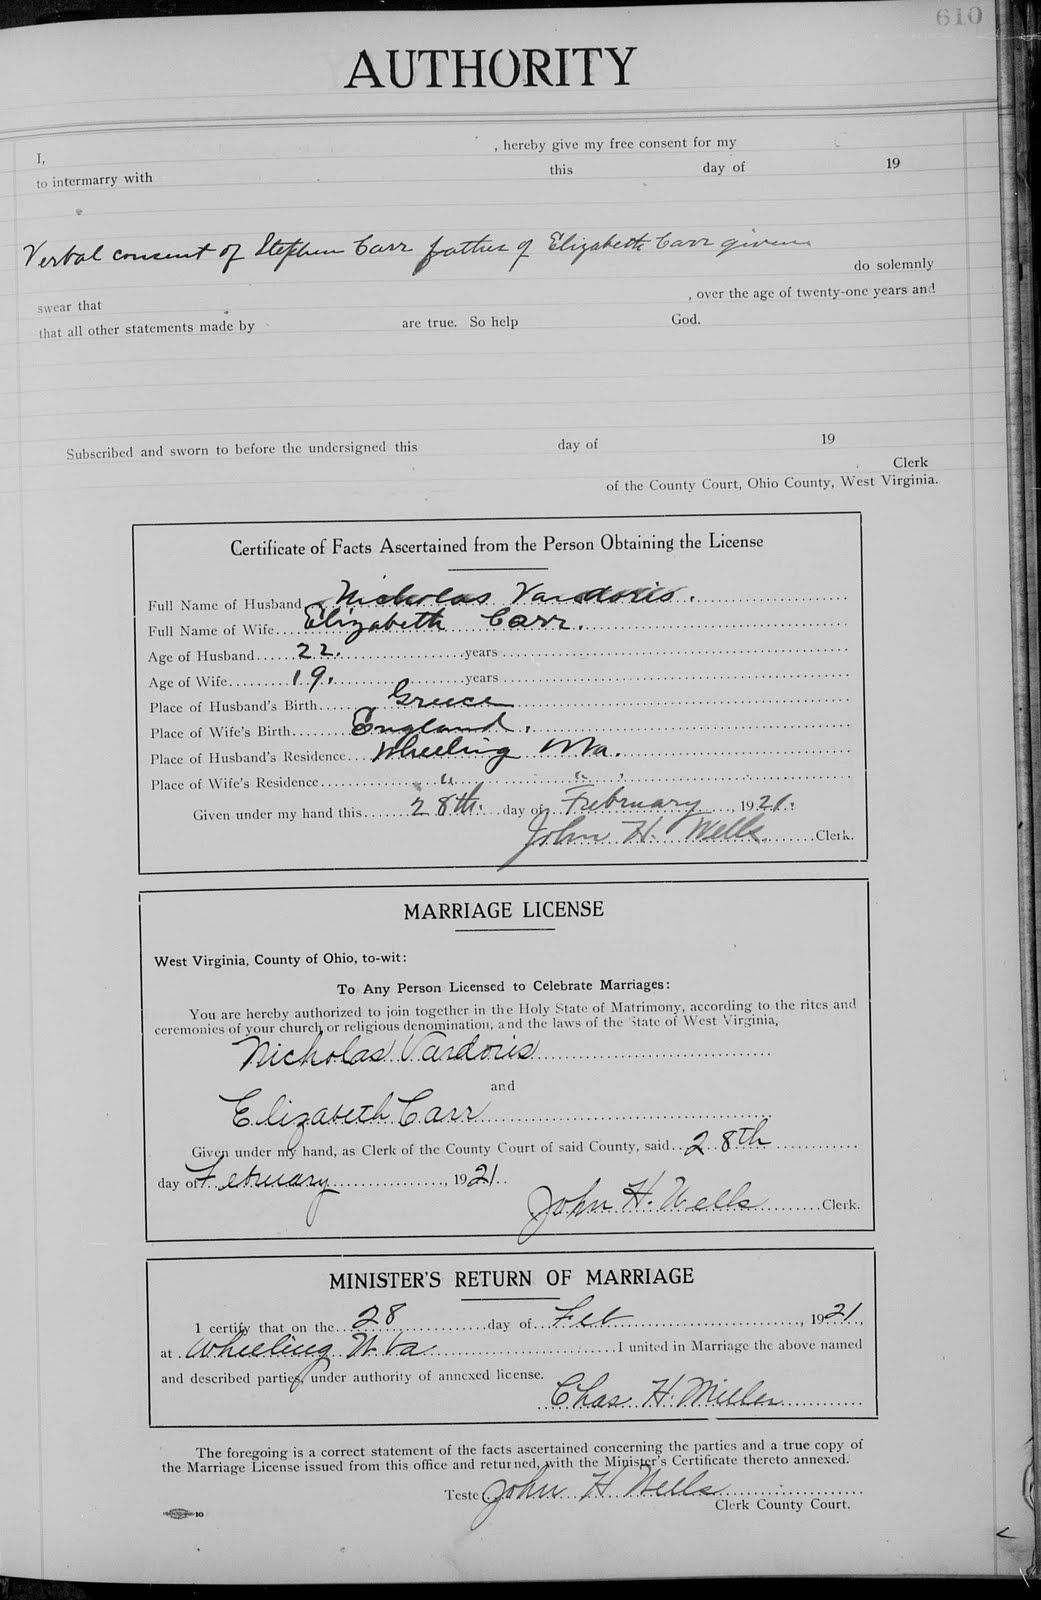 610
AUTHORITY
I, , hereby give my free consent for my
to intermarry with this day of 19
Verbal consent of Stephen Carr father of Elizabeth Carr given
do solemnly
swear that , over the age of twenty-one years and
that all other statements made by are true. So help God.
Subscribed and sworn to before the undersigned this day of 19
Clerk
of the County Court, Ohio County, West Virginia.
Certificate of Facts Ascertained from the Person Obtaining the License
Full Name of Husband Nicholas Vardoris.
Full Name of Wife Elizabeth Carr.
Age of Husband 22. years
Age of Wife 19. years
Place of Husband's Birth Greece
Place of Wife's Birth England.
Place of Husband's Residence Wheeling WVa.
Place of Wife's Residence " "
Given under my hand this 28th. day of February, 1921.
John H. Wells Clerk.
MARRIAGE LICENSE
West Virginia, County of Ohio, to-wit:
To Any Person Licensed to Celebrate Marriages:
You are hereby authorized to join together in the Holy State of Matrimony, according to the rites and
ceremonies of your church or religious denomination, and the laws of the State of West Virginia,
Nicholas Vardoris
and
Elizabeth Carr
Given under my hand, as Clerk of the County Court of said County, said 28th
day of February, 1921
John H. Wells Clerk.
MINISTER'S RETURN OF MARRIAGE
I certify that on the 28 day of Feb, 1921,
at Wheeling W Va I united in Marriage the above named
and described parties, under authority of annexed license.
Chas. H. Miller
The foregoing is a correct statement of the facts ascertained concerning the parties and a true copy of
the Marriage License issued from this office and returned, with the Minister's Certificate thereto annexed.
Teste John H Wells
Clerk County Court.
10